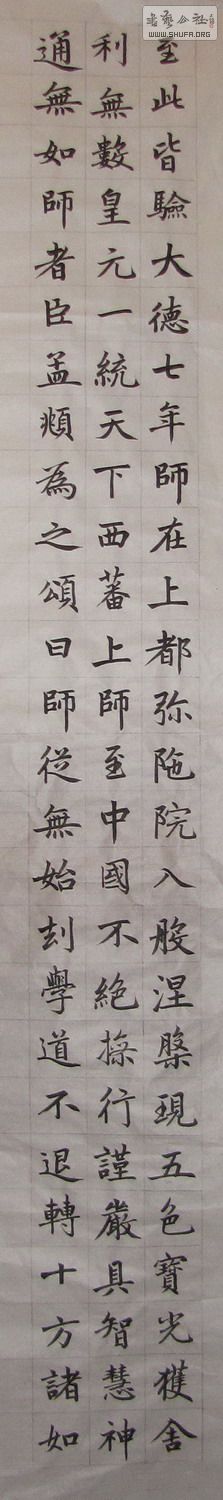 至此皆驗大德七年師在上都弥陁院入般涅槃現五色寶光獲舍
利無數皇元一統天下西蕃上師至中國不絕操行謹嚴具智慧神
通無如師者臣孟頫為之頌曰師從無始刦學道不退轉十方諸如
書藝公社
WWW.SHUFA.ORG